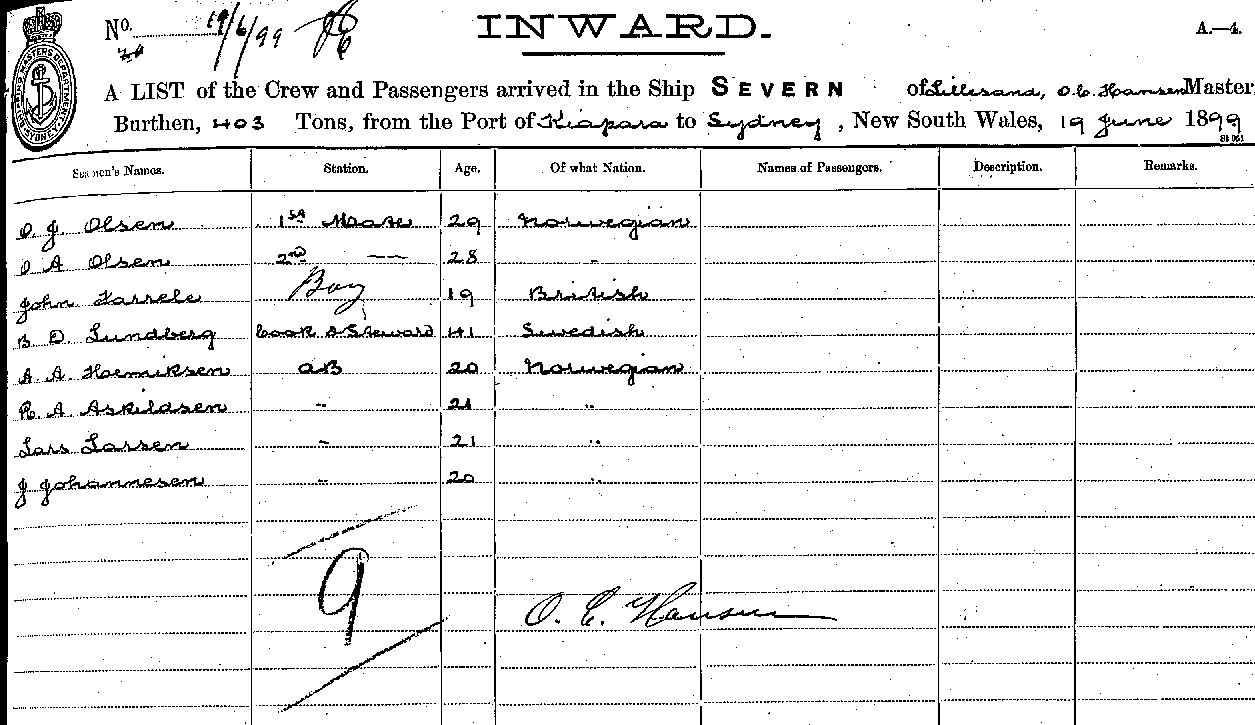 No. 19/6/99
INWARD. A.—4.
A LIST of the Crew and Passengers arrived in the Ship SEVERN of Lillesand, O. C. Hansen Master,
Burthen, 403 Tons, from the Port of Kiapara to Sydney, New South Wales, 19 June 1899
Seamen's Names. Station. Age. Of what Nation. Names of Passengers. Description. Remarks.
O. J. Olsen 1st Mate 29 Norwegian
O A Olsen 2nd — 28 "
John Farrele Boy 19 British
B D. Lundberg Cook & Steward 41 Swedish
A A Hoemiksen AB 20 Norwegian
R. A. Askildsen " 21 "
Lars Larsen " 21 "
J Johannesen " 20 "
9
O. C. Hansen